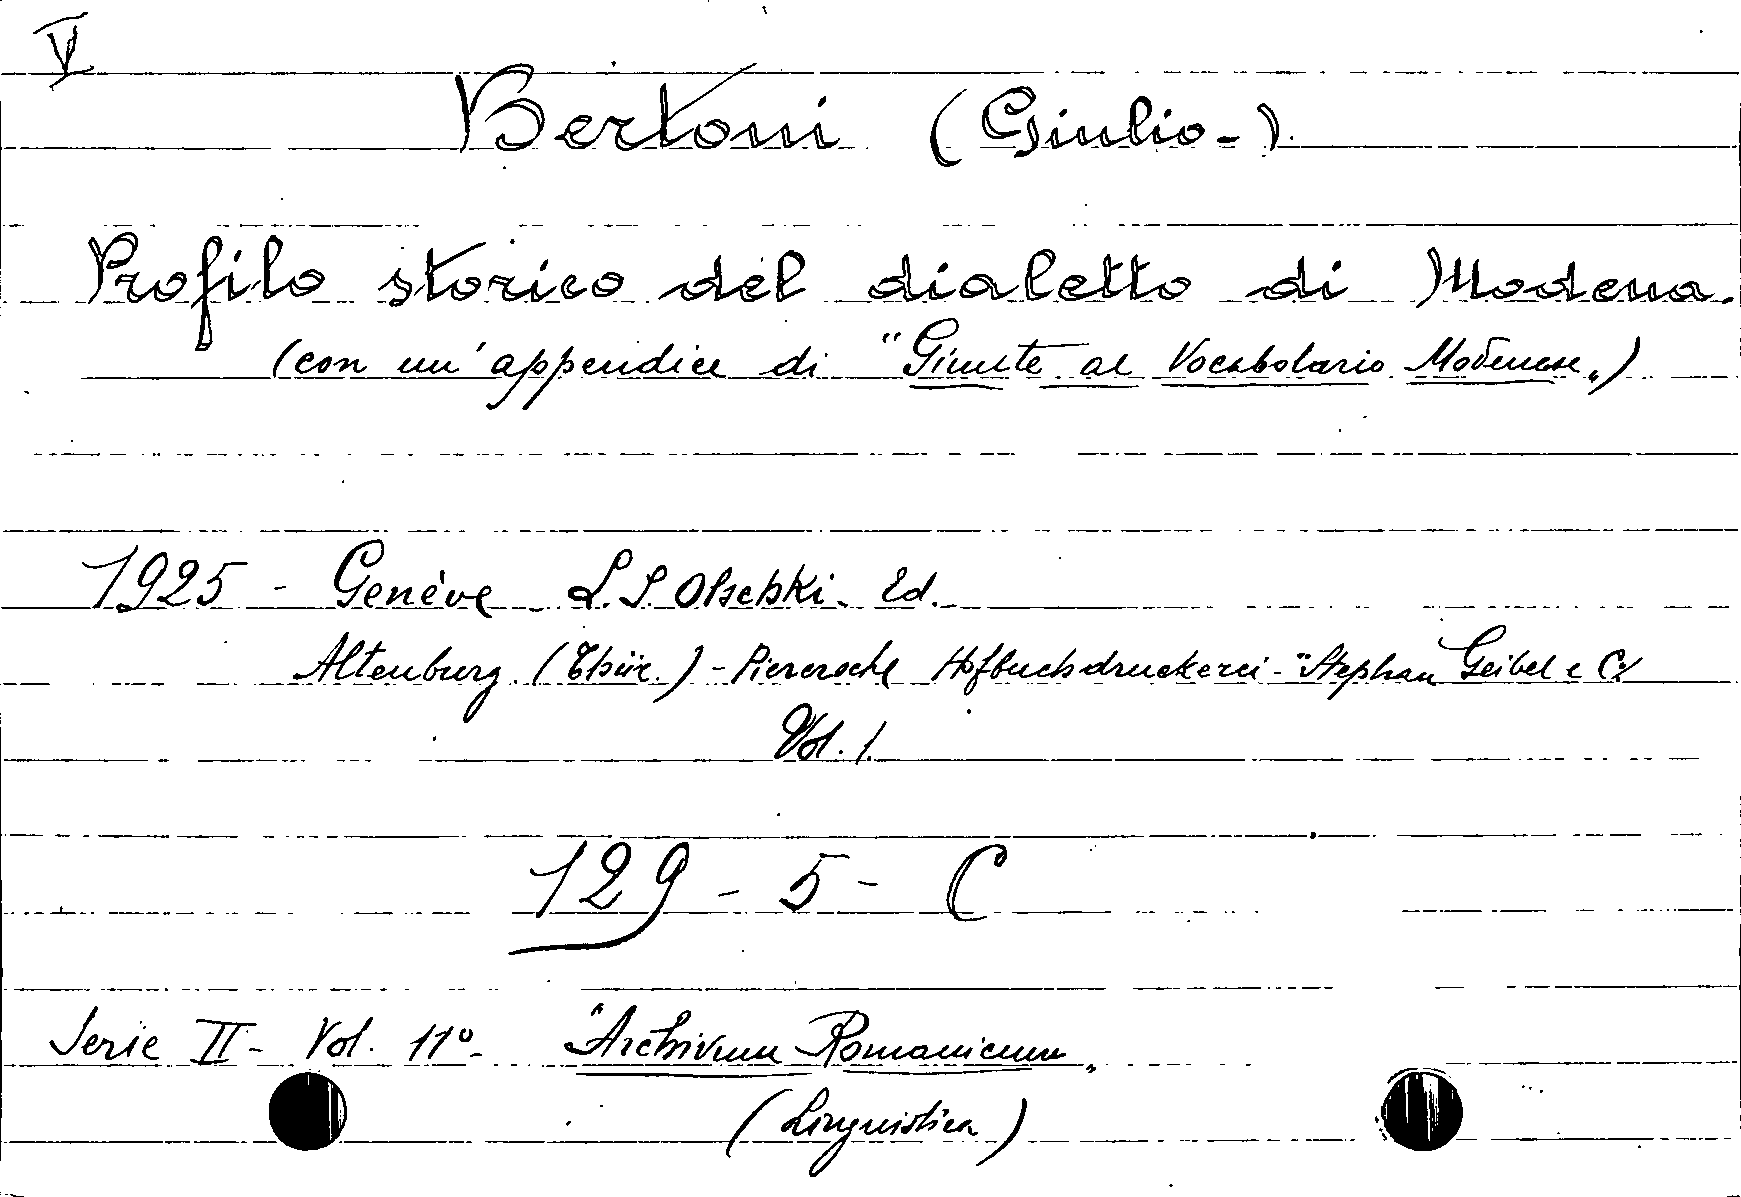 V
Bertoni (Giulio-).
Profilo storico del dialetto di Modena.
(con un'appendice di "Giunte al Vocabolario Modenese„)
1925 - Genève - L. S. Olschki. Ed.
Altenburg. (Thür.) - Pierersche Hofbuchdruckerei - "Stephan Geibel e C.
Vol. 1.
129 - 5 - C
Serie II - Vol. 11° - "Archivum Romanicum„
(Linguistica)